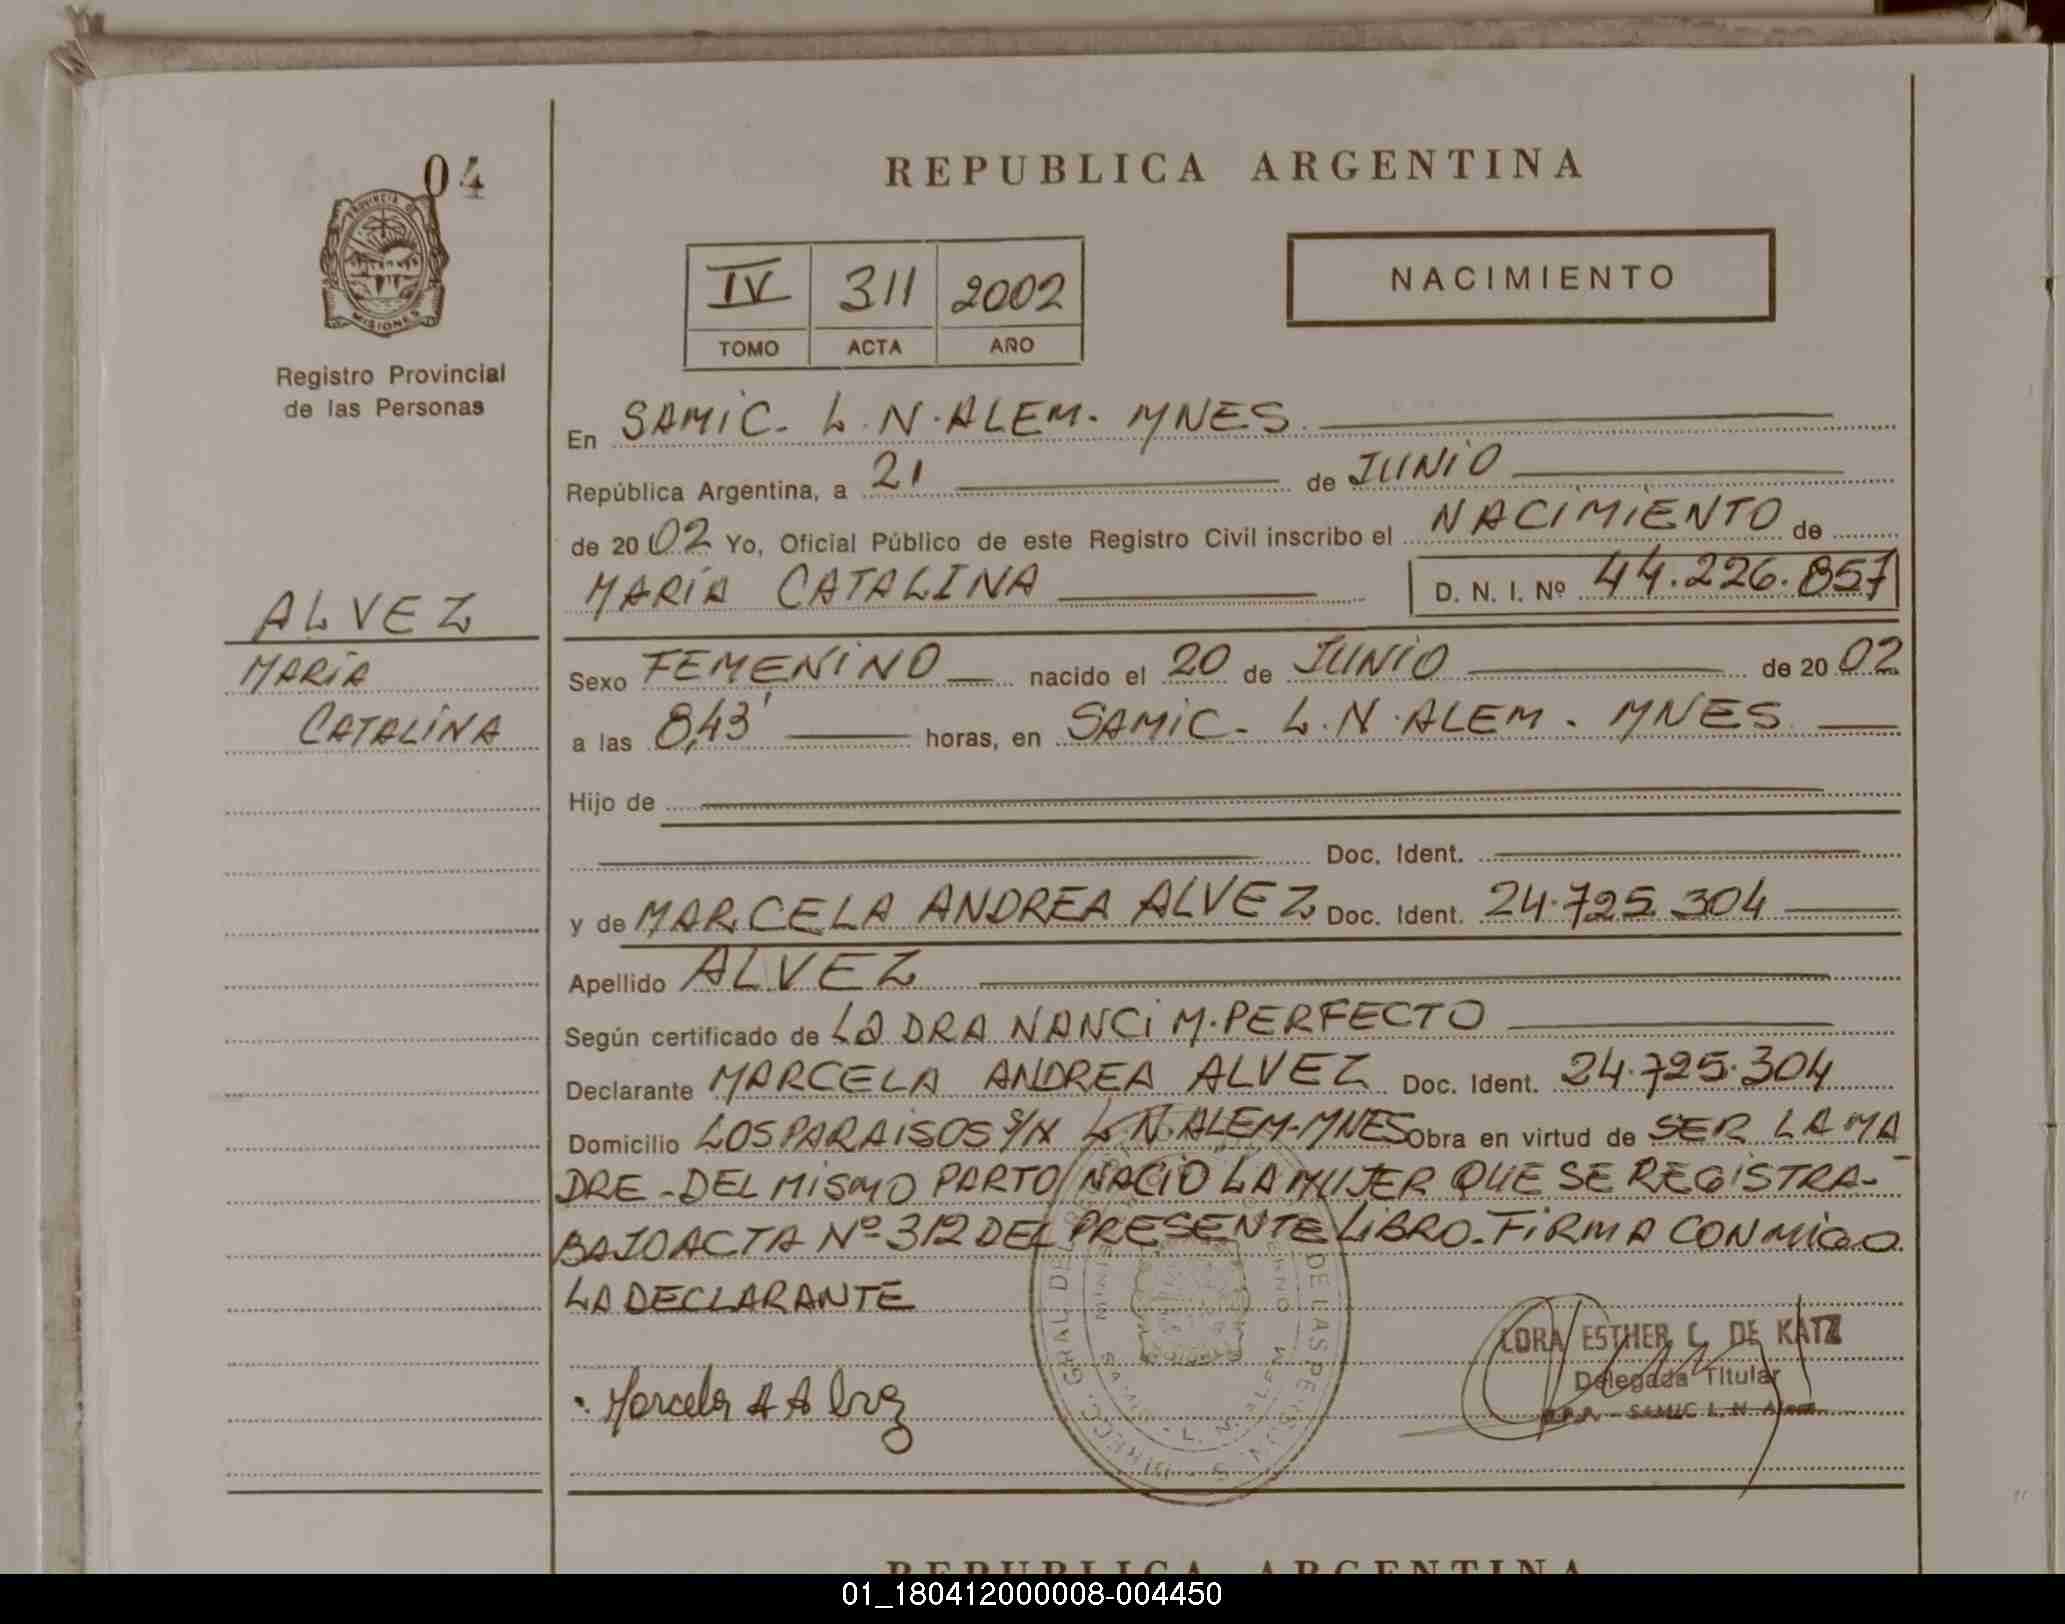 04
PROVINCIA DE
MISIONES
Registro Provincial
de las Personas
ALVEZ
MARÍA
CATALINA
REPUBLICA ARGENTINA
IV 311 2002
TOMO ACTA AÑO
NACIMIENTO
En SAMIC- L.N.ALEM- MNES
República Argentina, a 21 de JUNIO
de 20 02 Yo, Oficial Público de este Registro Civil inscribo el NACIMIENTO de
MARÍA CATALINA D. N. I. Nº 44.226.857
Sexo FEMENINO nacido el 20 de JUNIO de 20 02
a las 8,43' horas, en SAMIC- L.N.ALEM- MNES
Hijo de
Doc. Ident.
y de MARCELA ANDREA ALVEZ Doc. Ident. 24.725.304
Apellido ALVEZ
Según certificado de LA DRA NANCI M.PERFECTO
Declarante MARCELA ANDREA ALVEZ Doc. Ident. 24.725.304
Domicilio LOS PARAISOS S/N L.N.ALEM-MNES Obra en virtud de SER LA MA
DRE-DEL MISMO PARTO NACIO LA MUJER QUE SE REGISTRA-
BAJO ACTA Nº 312 DEL PRESENTE LIBRO-FIRMA CONMIGO
LA DECLARANTE
Marcela A Alvez
LORA ESTHER C. DE KATZ
Delegada Titular
SAMIC L. N. Alem
REPUBLICA ARGENTINA
01_180412000008-004450